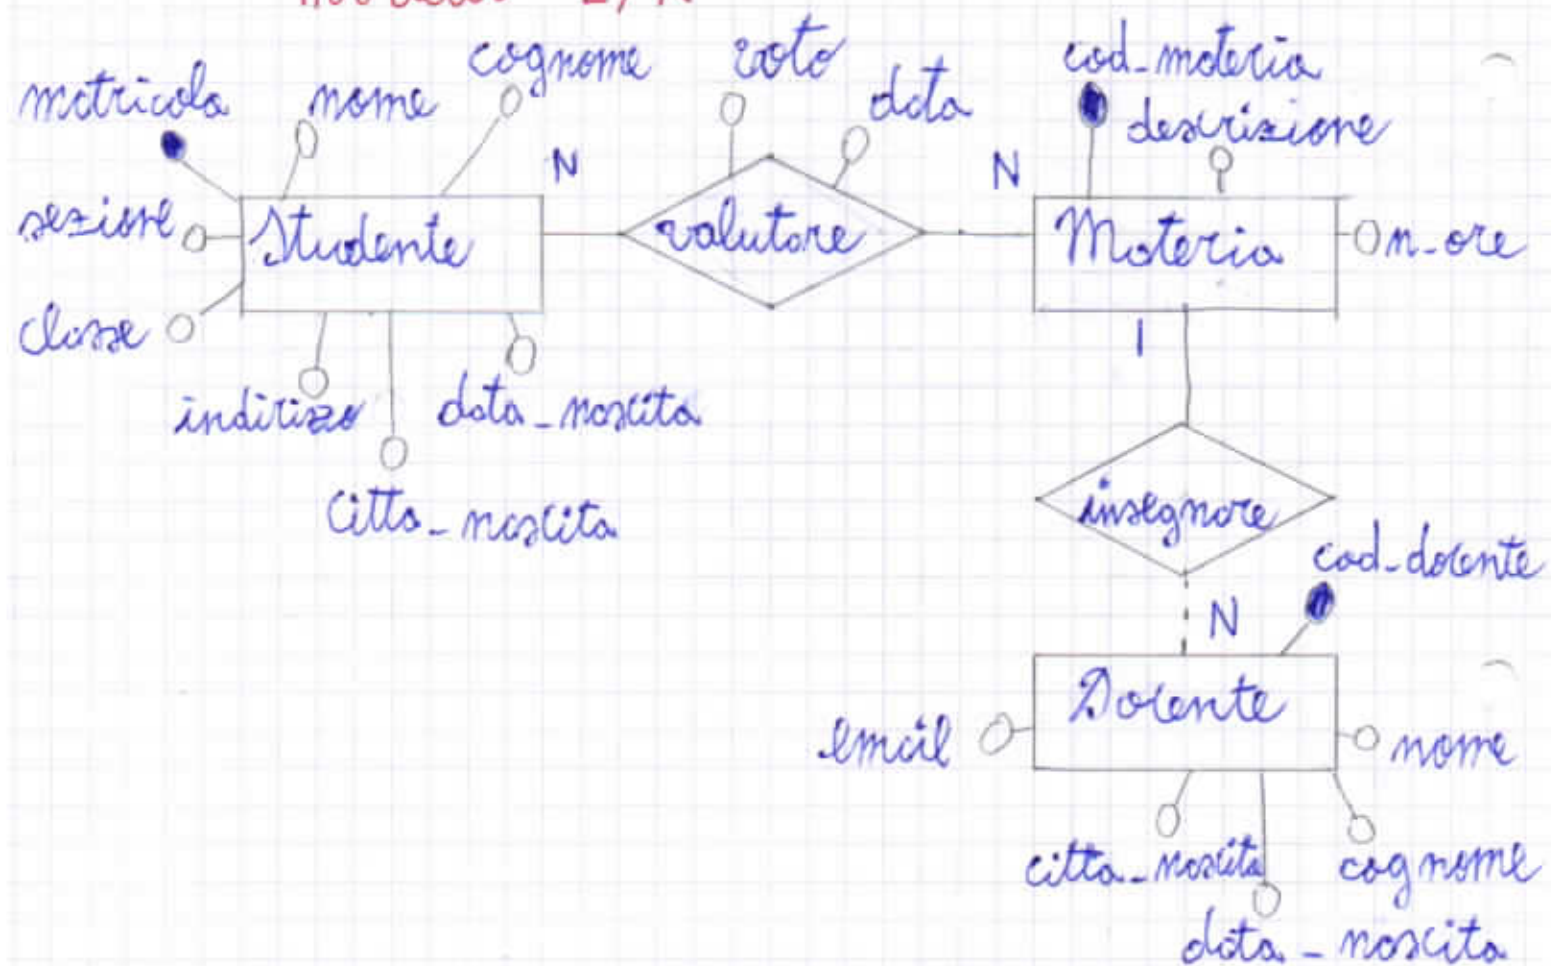 cognome voto cod_materia
matricola nome data
descrizione
N N
sezione Studente valutare Materia n_ore
classe 1
indirizzo data_nascita
citta_nascita
insegnare
cod_docente
N
Docente
email nome
citta_nascita cognome
data_nascita